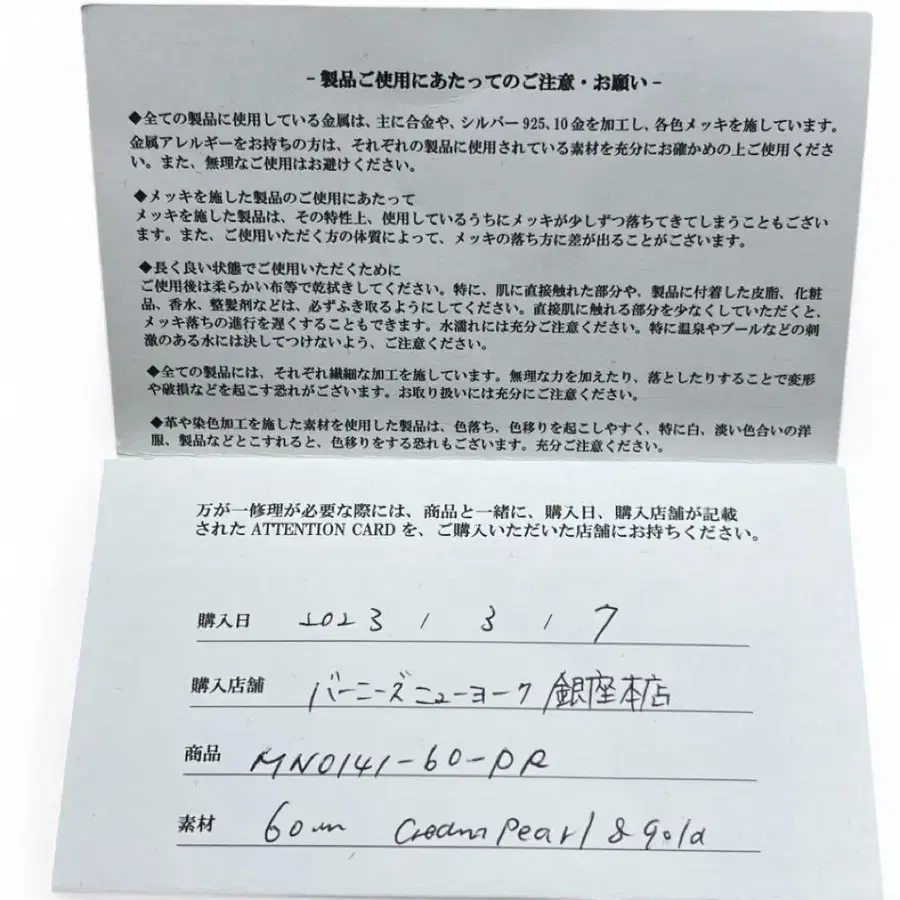 - 製品ご使用にあたってのご注意・お願い -
◆全ての製品に使用している金属は、主に合金や、シルバー925、10金を加工し、各色メッキを施しています。
金属アレルギーをお持ちの方は、それぞれの製品に使用されている素材を充分にお確かめの上ご使用くださ
い。また、無理なご使用はお避けください。
◆メッキを施した製品のご使用にあたって
メッキを施した製品は、その特性上、使用しているうちにメッキが少しずつ落ちてきてしまうこともござい
ます。また、ご使用いただく方の体質によって、メッキの落ち方に差が出ることがございます。
◆長く良い状態でご使用いただくために
ご使用後は柔らかい布等で乾拭きしてください。特に、肌に直接触れた部分や、製品に付着した皮脂、化粧
品、香水、整髪剤などは、必ずふき取るようにしてください。直接肌に触れる部分を少なくしていただくと、
メッキ落ちの進行を遅くすることもできます。水濡れには充分ご注意ください。特に温泉やプールなどの刺
激のある水には決してつけないよう、ご注意ください。
◆全ての製品には、それぞれ繊細な加工を施しています。無理な力を加えたり、落としたりすることで変形
や破損などを起こす恐れがございます。お取り扱いには充分にご注意ください。
◆革や染色加工を施した素材を使用した製品は、色落ち、色移りを起こしやすく、特に白、淡い色合いの洋
服、製品などとこすれると、色移りをする恐れもございます。充分ご注意ください。
万が一修理が必要な際には、商品と一緒に、購入日、購入店舗が記載
された ATTENTION CARD を、ご購入いただいた店舗にお持ちください。
購入日 2023 / 3 / 7
購入店舗 バーニーズニューヨーク/銀座本店
商品 MN0141-60-PR
素材 60cm Cream Pearl & gold